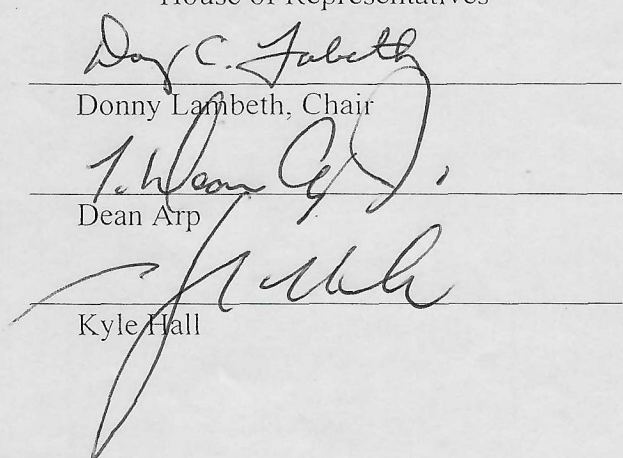 House of Representatives
Donny C. Lambeth
Donny Lambeth, Chair
Dean Arp
Kyle Hall